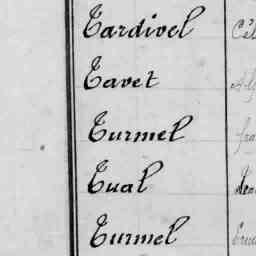 Tardivel
Tavet
Turmel
Tual
Turmel